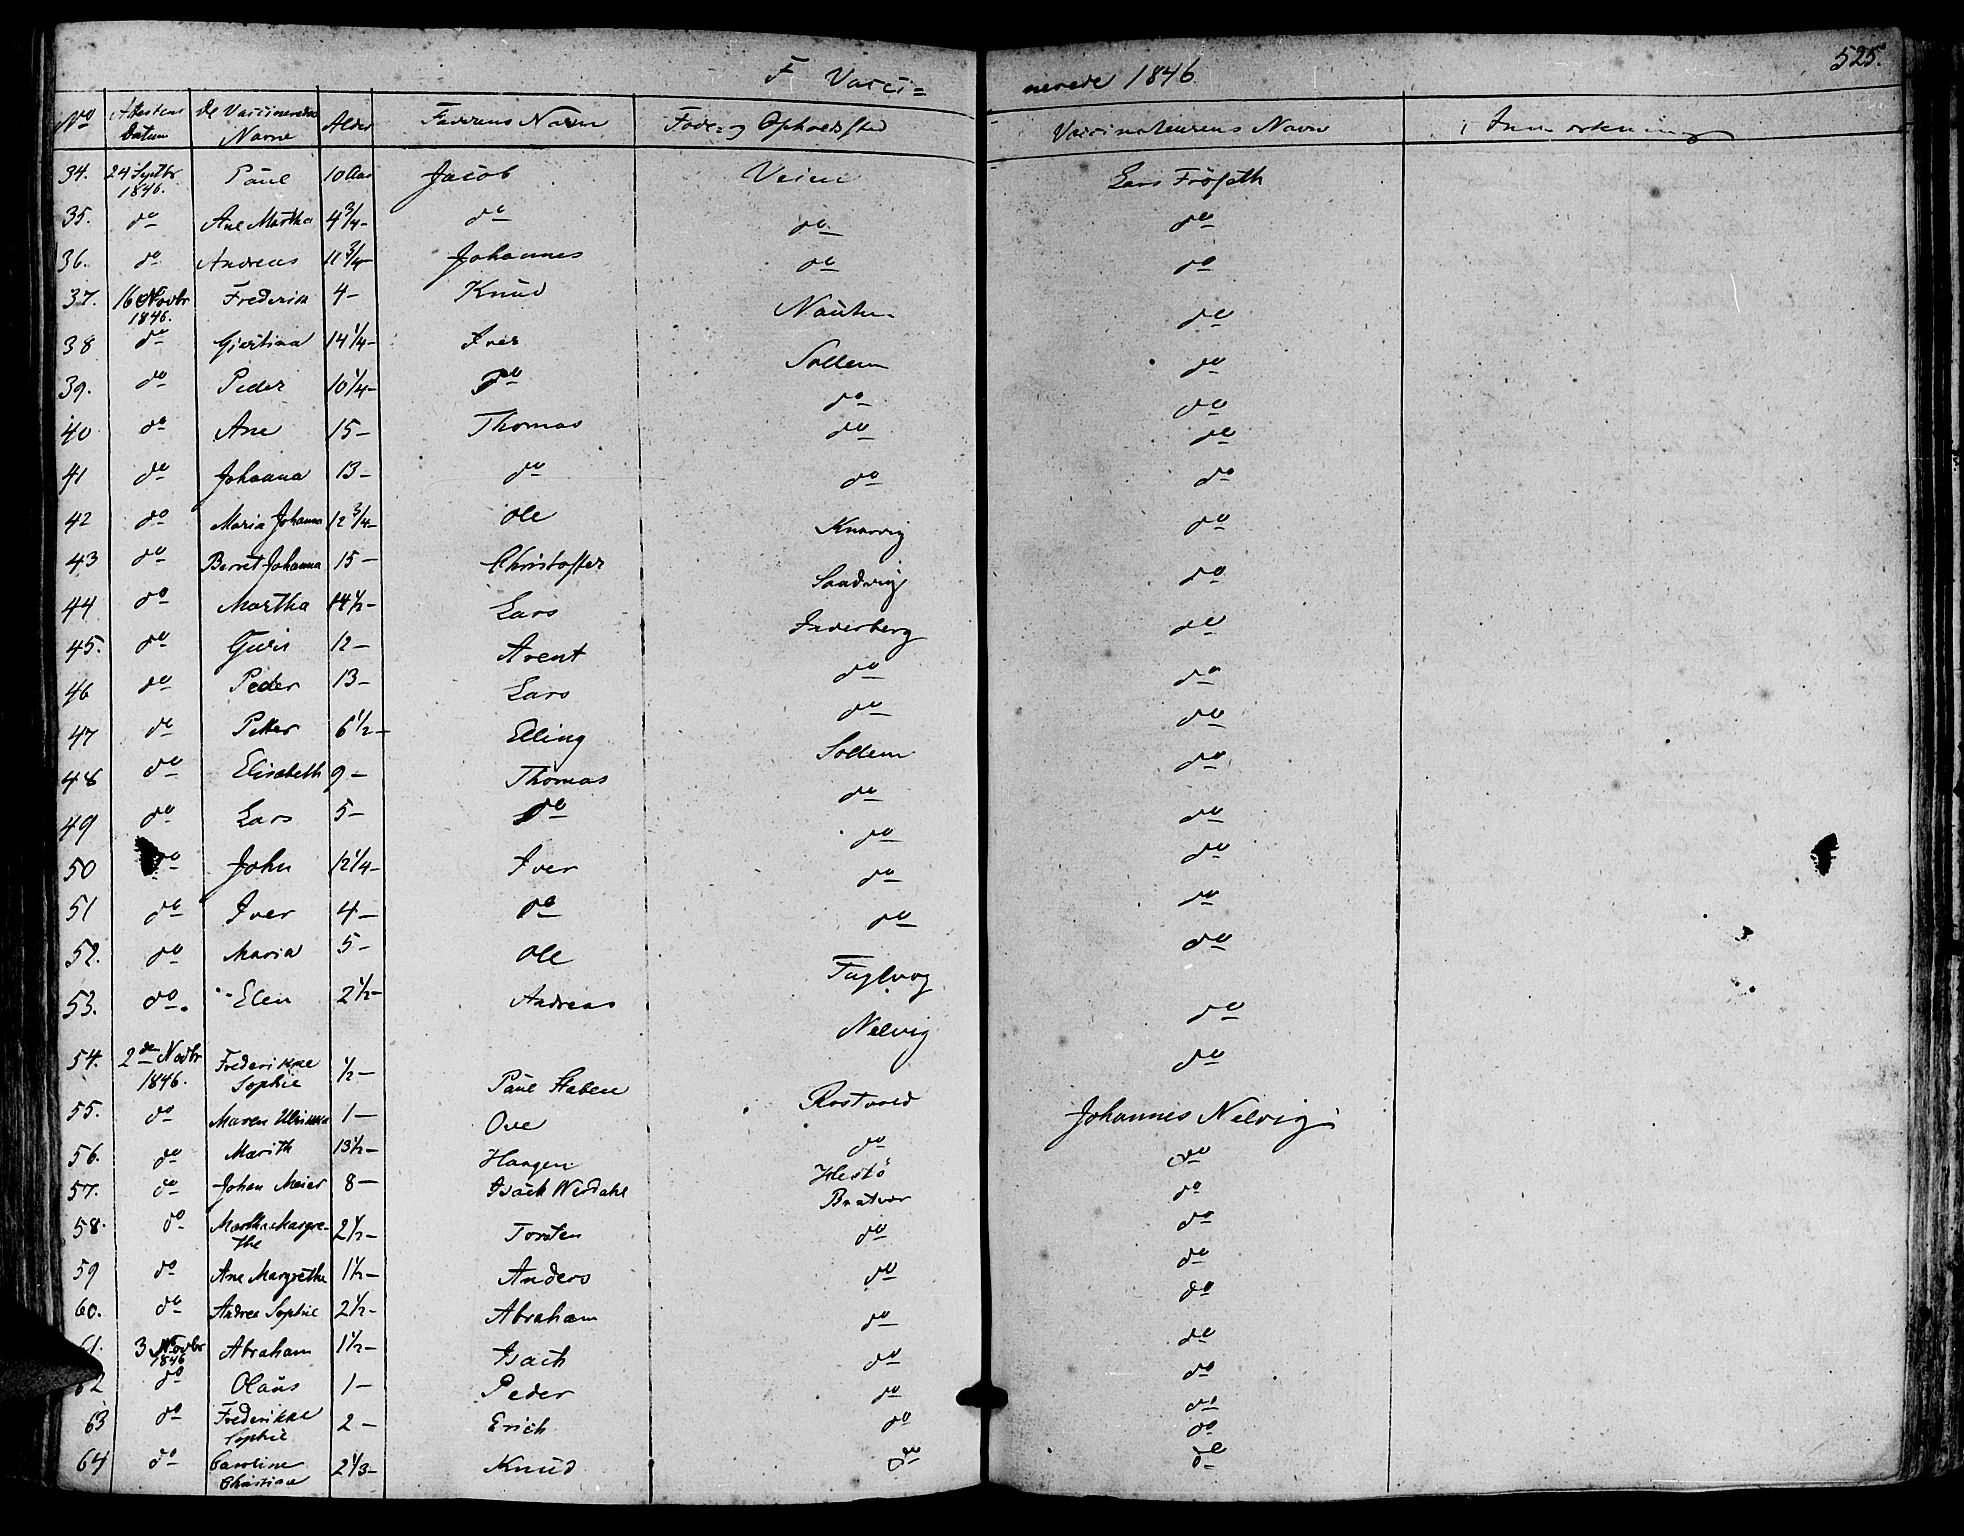 525.
F Vacci=
nerede 1846
No Attestens Datum De Vaccineredes Navne Alder Faderens Navn Føde- og Opholdssted Vaccinateurens Navn Anmærkning
34. 24 Septbr 1846. Paul 10 Aar Jacob Veien Lars Frösæth
35. do Ane Martha 4 3/4 - do do do
36. do Andreas 11 3/4 - Johannes do do
37. 16 Novbr 1846. Frederik 4 - Knud do
38 do Gjertina 14 1/4 - Iver Sollem do
39. do Peder 10 1/4 - do do do
40 do Ane 15 - Thomas do do
41 do Johanna 13 - do do do
42 do Maria Johanna 12 3/4 - Ole do
43 do Berret Johanna 15 - Christoffer Sandvig do
44 do Martha 14 1/2 - Lars Inderberg do
45. do Guri 12 - Arent do do
46 do Peder 13 - Lars do do
47 do Petter 6 1/2 - Elling Sollem do
48 do Elisabeth 9 - Thomas do do
49 do Lars 5 - do do do
50 do John 12 1/4 - Iver do do
51 do Iver 4 - do do do
52. do Maria 5 - Ole Fuglvog do
53. do. Elen 2 1/2 - Andreas Nelvig do
54. 2den Novbr 1846. Frederikke Sophie 1/2 - Paul Staben Rostvold Johannes Nelvig
55. do Maren Ulrikka 1 - Ove do do
56. do Marith 13 1/2 - Haagen Hestö do
57. do Johan Meier 8 - Isach Werdahl Bratvær do
58. do Martha Margrethe 2 1/2 - Torsten do do
59 do Ane Margrethe 1 1/2 - Anders do do
60. do Andrea Sophie 2 1/2 - Abraham do do
61. 3 Novbr 1846 Abraham 1 1/2 - Isach do do
62 do Olaus 1 - Peder do do
63 do Frederikke Sophie 2 - Erich do do
64 do Caroline Christiane 2 1/3 - Knud do do